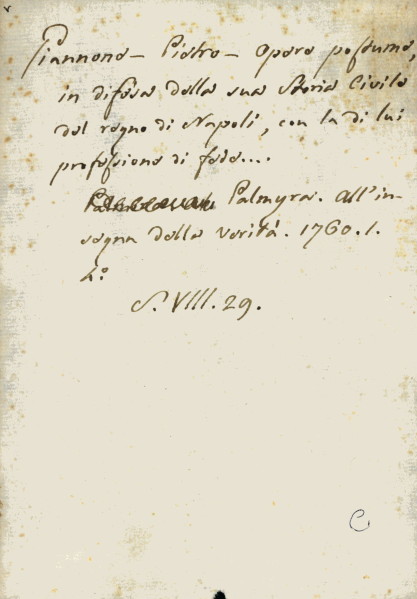 Giannone - Pietro - Opere postume,
in difesa della sua Storia Civile
del regno di Napoli, con la di lui
professione di fede....
Palmyra. All'in-
segna della verità. 1760. 1.
4.°
S. VIII. 29.
C